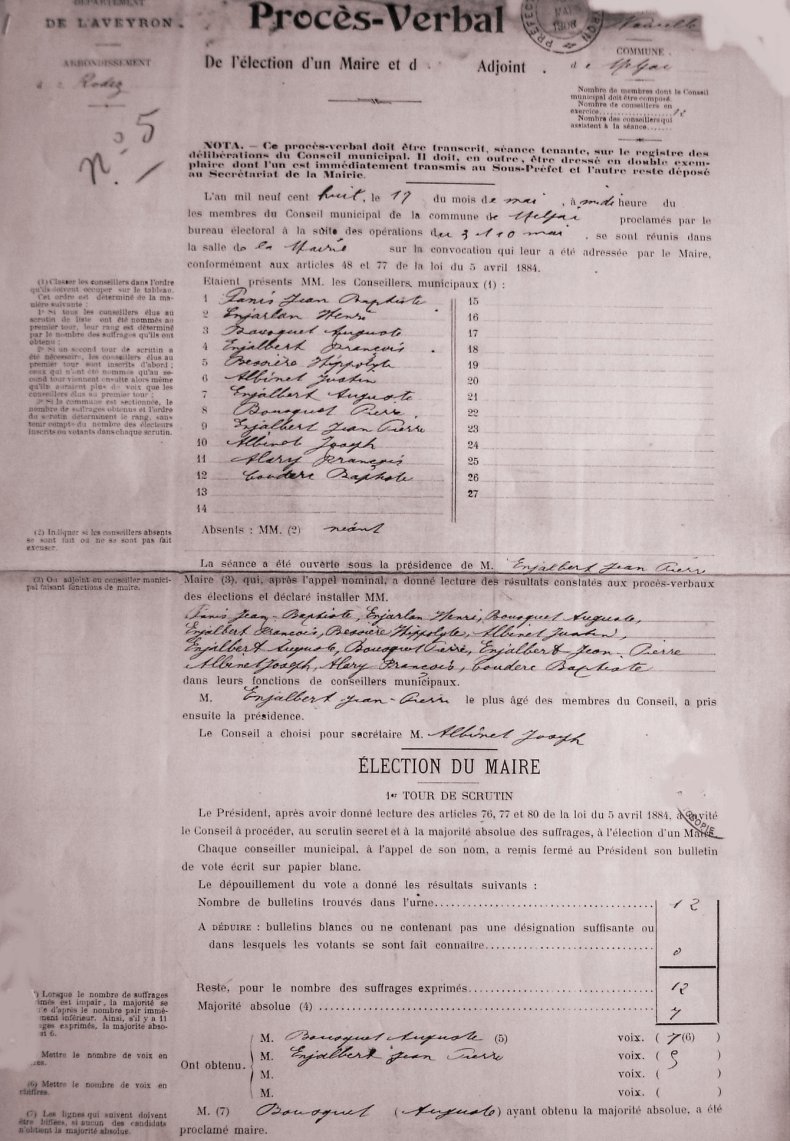 DÉPARTEMENT
DE L'AVEYRON.
ARRONDISSEMENT
de Rodez
n° 5
Procès-Verbal
De l'élection d'un Maire et d Adjoint .
COMMUNE
de
Nombre de membres dont le Conseil
municipal doit être composé.
Nombre de conseillers en
exercice 12
Nombre des conseillers qui
assistent à la séance
NOTA. — Ce procès-verbal doit être transcrit, séance tenante, sur le registre des
délibérations du Conseil municipal. Il doit, en outre, être dressé en double exem-
plaire dont l'un est immédiatement transmis au Sous-Préfet et l'autre reste déposé
au Secrétariat de la Mairie.
L'an mil neuf cent huit, le 17 du mois de mai, à midi heure du
les membres du Conseil municipal de la commune de proclamés par le
bureau électoral à la suite des opérations du 3 et 10 mai, se sont réunis dans
la salle de la Mairie sur la convocation qui leur a été adressée par le Maire,
conformément aux articles 48 et 77 de la loi du 5 avril 1884.
Etaient présents MM. les Conseillers municipaux (1) :
1 Panis Jean Baptiste
2 Enjarlan Henri
3 Bousquet Auguste
4 Enjalbert François
5 Bessière Hippolyte
6 Albinet Justin
7 Enjalbert Auguste
8 Bousquet Pierre
9 Enjalbert Jean Pierre
10 Albinet Joseph
11 Alary François
12 Couderc Baptiste
13
14
15
16
17
18
19
20
21
22
23
24
25
26
27
(1) Classer les conseillers dans l'ordre
qu'ils doivent occuper sur le tableau.
Cet ordre est déterminé de la ma-
nière suivante :
1° Si tous les conseillers élus au
scrutin de liste ont été nommés au
premier tour, leur rang est déterminé
par le nombre des suffrages qu'ils ont
obtenu ;
2° Si un second tour de scrutin a
été nécessaire, les conseillers élus au
premier tour sont inscrits d'abord ;
ceux qui n'ont été nommés qu'au se-
cond tour viennent ensuite alors même
qu'ils auraient plus de voix que les
conseillers élus au premier tour ;
3° Si la commune est sectionnée, le
nombre de suffrages obtenus et l'ordre
du scrutin déterminent le rang, sans
tenir compte du nombre des électeurs
inscrits ou votants dans chaque scrutin.
(2) Indiquer si les conseillers absents
se sont fait ou ne se sont pas fait
excuser.
Absents : MM. (2) néant
La séance a été ouverte sous la présidence de M. Enjalbert Jean Pierre
(3) Ou adjoint ou conseiller munici-
pal faisant fonctions de maire.
Maire (3), qui, après l'appel nominal, a donné lecture des résultats constatés aux procès-verbaux
des élections et déclaré installer MM.
Panis Jean-Baptiste, Enjarlan Henri, Bousquet Auguste,
Enjalbert François, Bessière Hippolyte, Albinet Justin,
Enjalbert Auguste, Bousquet Pierre, Enjalbert Jean-Pierre
Albinet Joseph, Alary François, Couderc Baptiste
dans leurs fonctions de conseillers municipaux.
M. Enjalbert Jean-Pierre le plus âgé des membres du Conseil, a pris
ensuite la présidence.
Le Conseil a choisi pour secrétaire M. Albinet Joseph
ÉLECTION DU MAIRE
1er TOUR DE SCRUTIN
Le Président, après avoir donné lecture des articles 76, 77 et 80 de la loi du 5 avril 1884, a invité
le Conseil à procéder, au scrutin secret et à la majorité absolue des suffrages, à l'élection d'un Maire.
COPIE
Chaque conseiller municipal, à l'appel de son nom, a remis fermé au Président son bulletin
de vote écrit sur papier blanc.
Le dépouillement du vote a donné les résultats suivants :
Nombre de bulletins trouvés dans l'urne 12
A DÉDUIRE : bulletins blancs ou ne contenant pas une désignation suffisante ou
dans lesquels les votants se sont fait connaître 0
Reste, pour le nombre des suffrages exprimés 12
Majorité absolue (4) 7
Lorsque le nombre de suffrages
exprimés est impair, la majorité se
d'après le nombre pair immé-
diatement inférieur. Ainsi, s'il y a 11
suffrages exprimés, la majorité abso-
6.
Mettre le nombre de voix en
(6) Mettre le nombre de voix en
chiffres.
(7) Les lignes qui suivent doivent
être biffées, si aucun des candidats
n'obtient la majorité absolue.
Ont obtenu.
M. Bousquet Auguste (5) voix. ( 7 (6) )
M. Enjalbert Jean Pierre voix. ( 5 )
M. voix. ( )
M. voix. ( )
M. (7) Bousquet (Auguste) ayant obtenu la majorité absolue, a été
proclamé maire.